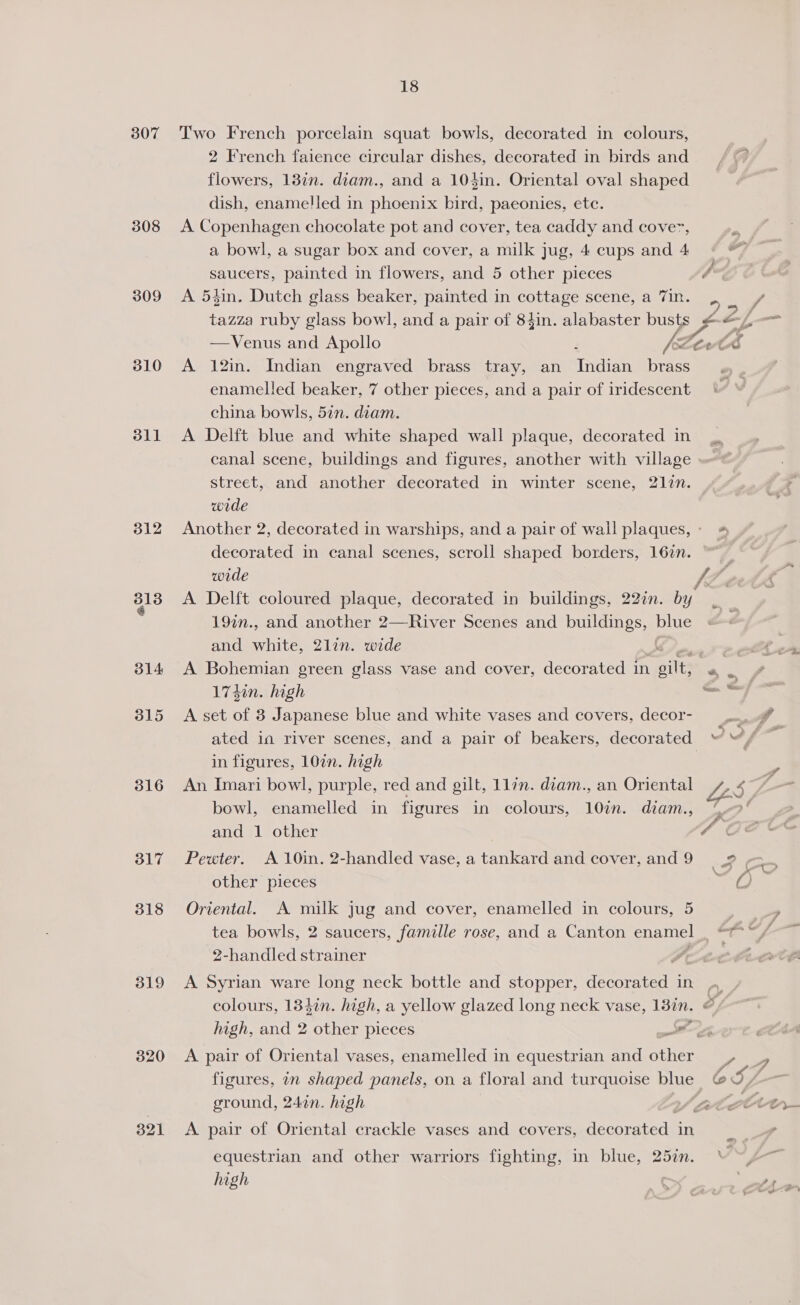 18
307 Two French porcelain squat bowls, decorated in colours,
2 French faience circular dishes, decorated in birds and
flowers, 13in. diam., and a 10½in. Oriental oval shaped
dish, enamelled in phoenix bird, paeonies, etc.
308 A Copenhagen chocolate pot and cover, tea caddy and cover,
a bowl, a sugar box and cover, a milk jug, 4 cups and 4
saucers, painted in flowers, and 5 other pieces
309 A 5½in. Dutch glass beaker, painted in cottage scene, a 7in.
tazza ruby glass bowl, and a pair of 8½in. alabaster busts
—Venus and Apollo
310 A 12in. Indian engraved brass tray, an Indian brass
enamelled beaker, 7 other pieces, and a pair of iridescent
china bowls, 5in. diam.
311 A Delft blue and white shaped wall plaque, decorated in
canal scene, buildings and figures, another with village
street, and another decorated in winter scene, 21in.
wide
312 Another 2, decorated in warships, and a pair of wall plaques,
decorated in canal scenes, scroll shaped borders, 16in.
wide
313 A Delft coloured plaque, decorated in buildings, 22in. by
19in., and another 2—River Scenes and buildings, blue
and white, 21in. wide
314 A Bohemian green glass vase and cover, decorated in gilt,
17½in. high
315 A set of 3 Japanese blue and white vases and covers, decor-
ated in river scenes, and a pair of beakers, decorated
in figures, 10in. high
316 An Imari bowl, purple, red and gilt, 11in. diam., an Oriental
bowl, enamelled in figures in colours, 10in. diam.,
and 1 other
317 Pewter. A 10in. 2-handled vase, a tankard and cover, and 9
other pieces
318 Oriental. A milk jug and cover, enamelled in colours, 5
tea bowls, 2 saucers, famille rose, and a Canton enamel
2-handled strainer
319 A Syrian ware long neck bottle and stopper, decorated in
colours, 13½in. high, a yellow glazed long neck vase, 13in.
high, and 2 other pieces
320 A pair of Oriental vases, enamelled in equestrian and other
figures, in shaped panels, on a floral and turquoise blue
ground, 24in. high
321 A pair of Oriental crackle vases and covers, decorated in
equestrian and other warriors fighting, in blue, 25in.
high